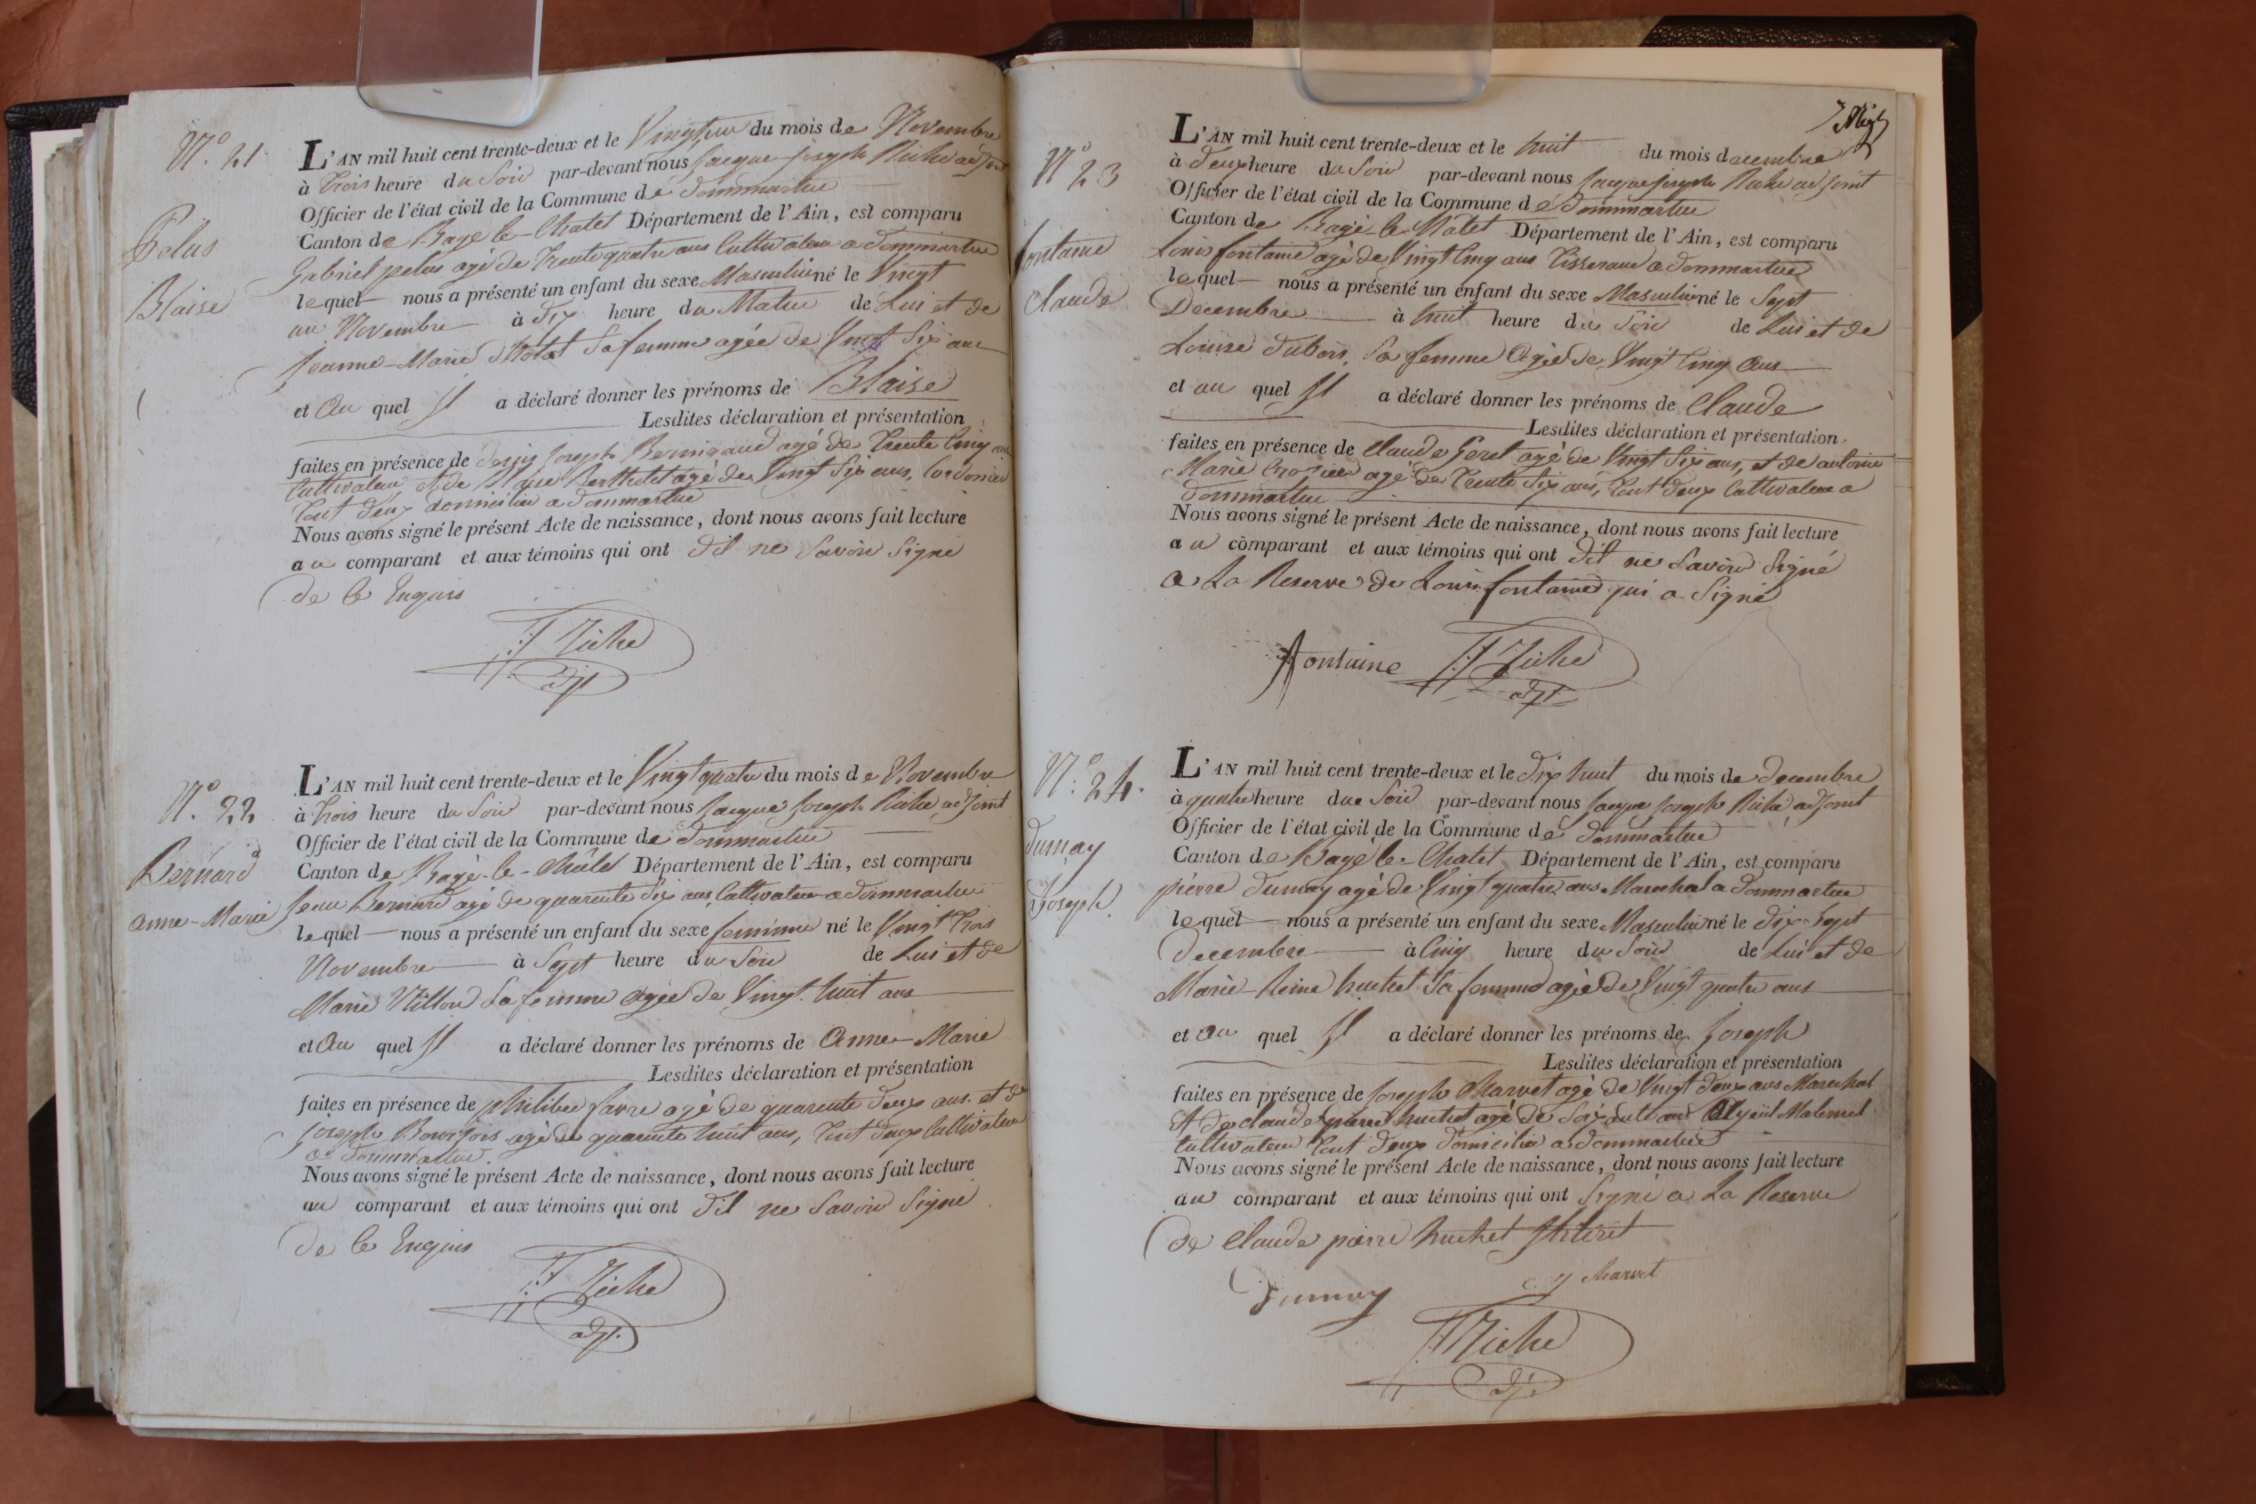 N.° 21.
Pelus
Blaise
L'AN mil huit cent trente-deux et le Vingt un du mois de Novembre
à trois heure du Soir par-devant nous Jacque Joseph Riche adjoint
Officier de l'état civil de la Commune de Dommartin
Canton de Bagé le Chatel Département de l'Ain, est comparu
Gabriel pelus agé de trente quatre ans Cultivateur a Dommartin
lequel nous a présenté un enfant du sexe Masculin né le Vingt
un Novembre à Dix heure du Matin de Lui et de
Jeanne-Marie Sa femme agée de Vingt Six ans
et Au quel Il a déclaré donner les prénoms de Blaise
Lesdites déclaration et présentation
faites en présence de Joseph agé de trente Cinq ans
Cultivateur et de Berthelet agé de Vingt Six ans, Cordonier
tout deux domicilier a Dommartin
Nous avons signé le présent Acte de naissance, dont nous avons fait lecture
au comparant et aux témoins qui ont Dit ne Savoir Signé
de Ce Enquis
JJ Riche
adjt
N.° 22
Bernard
anne-Marie
L'AN mil huit cent trente-deux et le Vingt quatre du mois de Novembre
à trois heure du Soir par-devant nous Jacque Joseph Riche adjoint
Officier de l'état civil de la Commune de Dommartin
Canton de Bagé-le-Châtel Département de l'Ain, est comparu
Jean Bernard agé de quarente Six ans Cultivateur a Dommartin
lequel nous a présenté un enfant du sexe feminine né le Vingt trois
Novembre à Sept heure du Soir de Lui et de
Marie Sa femme agée de Vingt huit ans
et Au quel Il a déclaré donner les prénoms de Anne-Marie
Lesdites déclaration et présentation
faites en présence de philibert favre agé de quarente Deux ans et de
Joseph agé de quarente huit ans, tout deux Cultivateur
a Dommartin
Nous avons signé le présent Acte de naissance, dont nous avons fait lecture
au comparant et aux témoins qui ont Dit ne Savoir Signé
de Ce Enquis
JJ Riche
adjt.
N° 23
fontaine
Claude
L'AN mil huit cent trente-deux et le huit du mois decembre
à Deux heure du Soir par-devant nous Jacque Joseph Riche adjoint
Officier de l'état civil de la Commune de Dommartin
Canton de Bagé-le-Châtel Département de l'Ain, est comparu
Louis fontaine agé de Vingt Cinq ans tisserand a Dommartin
lequel nous a présenté un enfant du sexe Masculin né le Sept
Decembre à huit heure du Soir de Lui et de
Louise Dubois Sa femme Agée de Vingt Cinq ans
et au quel Il a déclaré donner les prénoms de Claude
Lesdites déclaration et présentation
faites en présence de Claude agé de Vingt Six ans, et de antoine
Marie agé de trente Six ans, tout deux Cultivateur a
Dommartin
Nous avons signé le présent Acte de naissance, dont nous avons fait lecture
au comparant et aux témoins qui ont Dit ne Savoir Signé
a La Reserve de Louis fontaine qui a Signé
fontaine JJ Riche
adjt
N.° 24.
Dumay
Joseph
L'AN mil huit cent trente-deux et le Dix huit du mois de decembre
à quatre heure du Soir par-devant nous Jacque Joseph Riche adjoint
Officier de l'état civil de la Commune de Dommartin
Canton de Bagé le Chatel Département de l'Ain, est comparu
pierre Dumay agé de Vingt quatre ans Marechal a Dommartin
lequel nous a présenté un enfant du sexe Masculin né le Dix-Sept
decembre à Cinq heure du Soir de Lui et de
Marie-Reine huchet Sa femme agée de Vingt quatre ans
et au quel Il a déclaré donner les prénoms de Joseph
Lesdites déclaration et présentation
faites en présence de Joseph Charvet agé de Vingt Deux ans Marechal
Et de claude pierre huchet agé de ans Maternel
Cultivateur tout Deux Domicilier a Dommartin
Nous avons signé le présent Acte de naissance, dont nous avons fait lecture
au comparant et aux témoins qui ont Signé a La Reserve
de Claude pierre huchet
Dumay J Charvet
JJ Riche
adjt